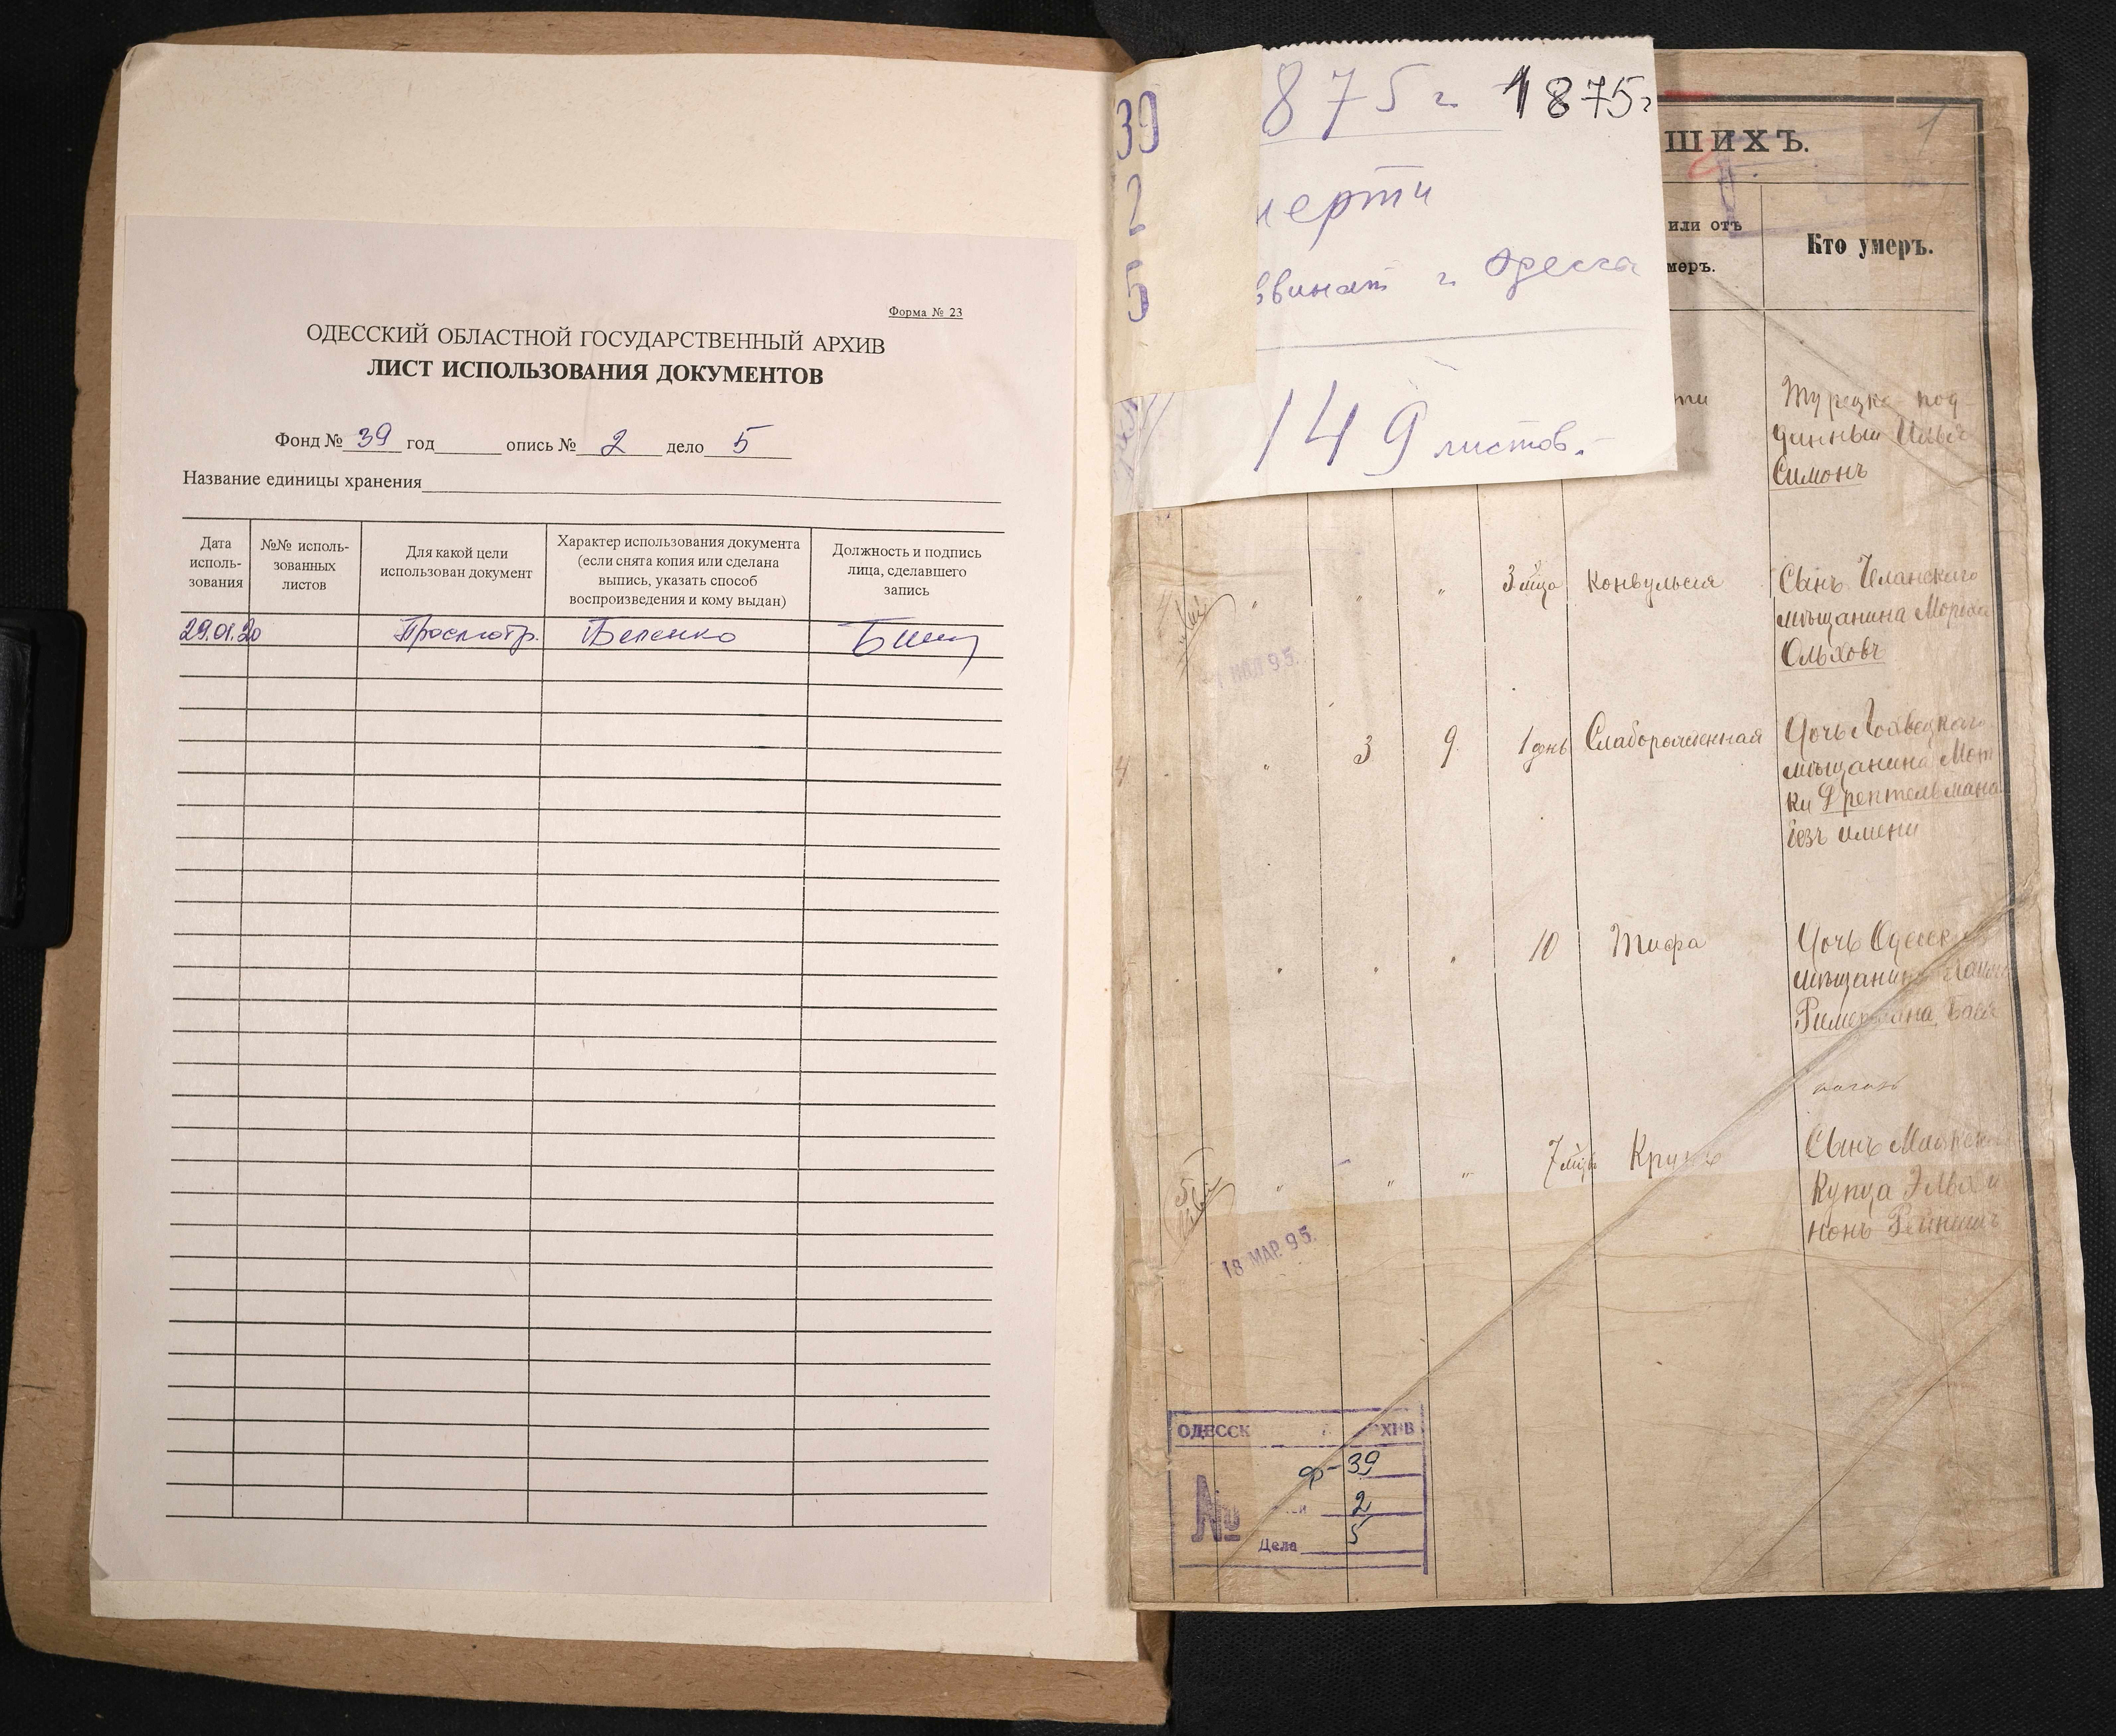 Форма № 23
ОДЕССКИЙ ОБЛАСТНОЙ ГОСУДАРСТВЕННЫЙ АРХИВ
ЛИСТ ИСПОЛЬЗОВАНИЯ ДОКУМЕНТОВ
Фонд № 39 год опись № 2 дело 5
Название единицы хранения
Дата исполь-зования
№№ исполь-зованных листов
Для какой цели использован документ
Характер использования документа
(если снята копия или сделана
выпись, указать способ
воспроизведения и кому выдан)
Должность и подпись
лица, сделавшего
запись
29.01.20 Просмотр. Беленко
39
2
5
875 г. 1875г
мерти
ввинат г. Одесса
149 листов.
шихъ.
1
или отъ
меръ.
Кто умеръ.
Турецко-под
данный
Симонъ
3 мца Конвульсія
Сынъ
мѣщанина
Ольховъ
95.
4
3 9 1 день Слаборожденная
Дочь Лохвецкаго
мѣщанина Мот
ки
безъ имени
10 Тифа
Дочь Одесск
мѣщанина
5
7 мця Крупъ
Сынъ
Купца
нонъ
18 МАР. 95.
ОДЕССК АРХИВ
ф-39
№
2
Дела 5